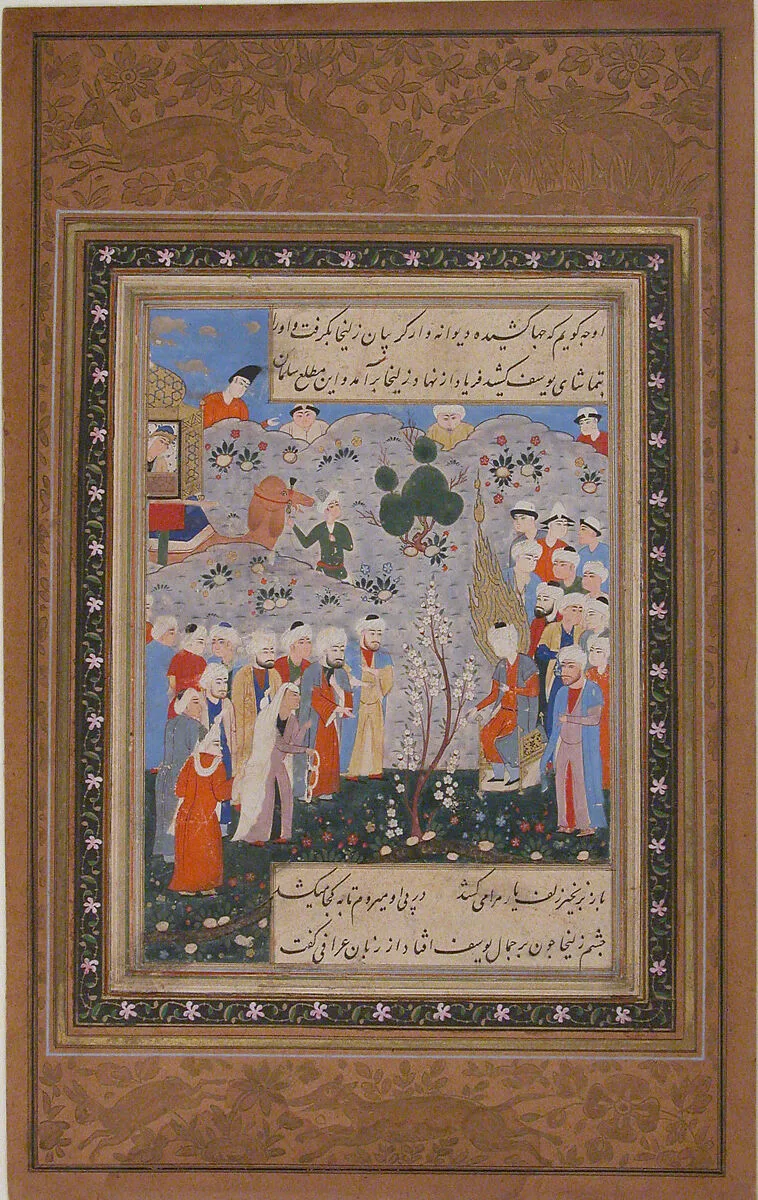 او چه کویم که جها کشیده دیوانه وار کریبان زلیخا بکرفت و اورا
بتماشای یوسف کشید فریاد از نهاد زلیخا برآمد و این مطلع سلمان
باز زنجیر زلف یار مرا می کشد در پی او میروم تا به کجا میکشد
چشم زلیخا چون بر جمال یوسف افتاد از زبان عراقی گفت